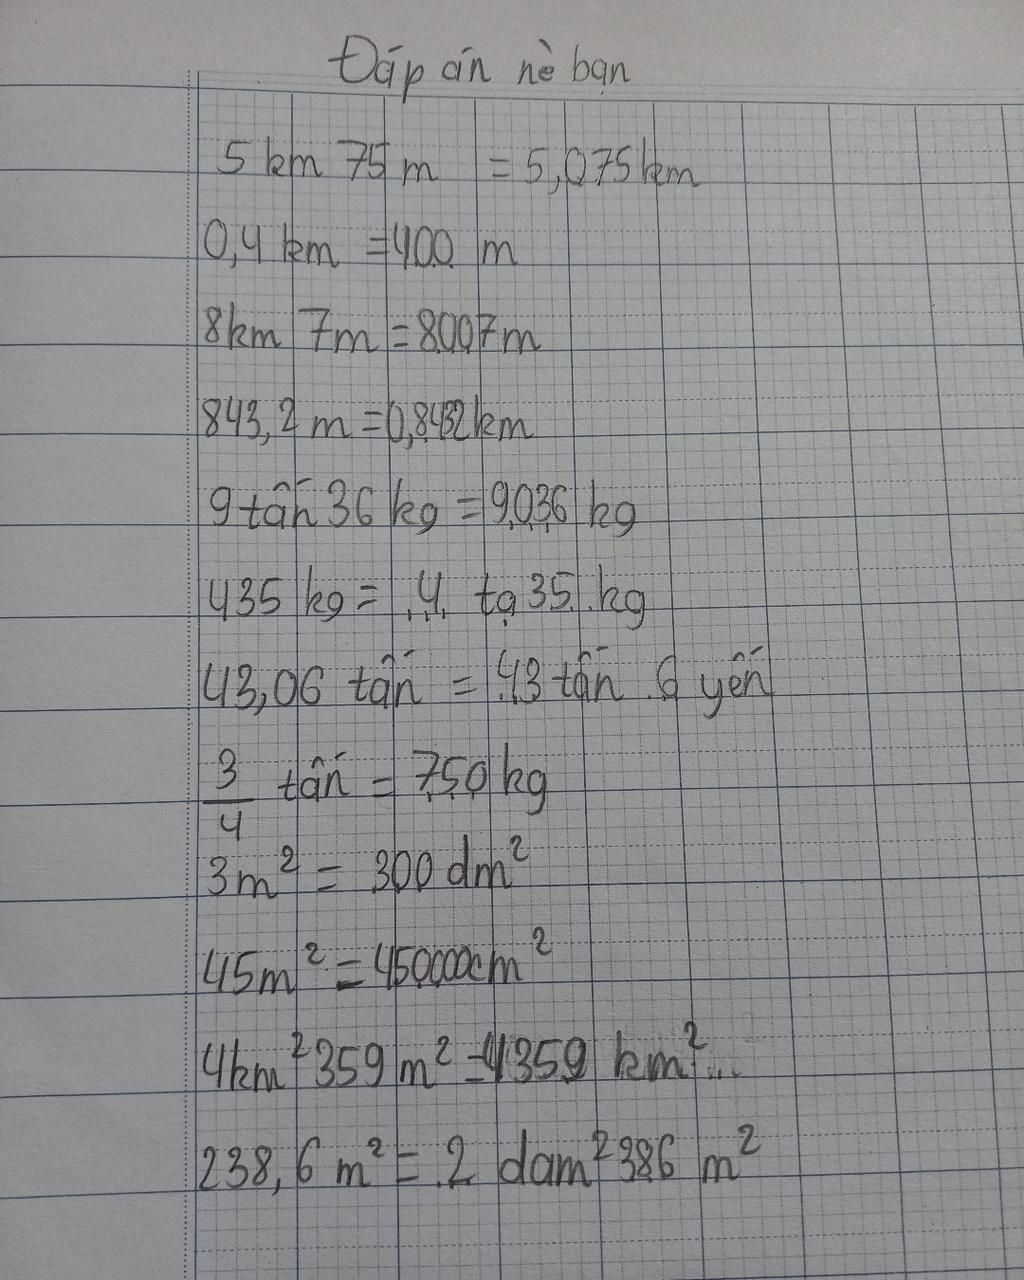 Đáp án nè bạn
5 km 75 m = 5,075 km
0,4 km = 400 m
8km 7m = 8007m
843,2 m = 0,8432 km
9 tấn 36 kg = 9036 kg
435 kg = .4. tạ 35. kg
43,06 tấn = .43 tấn .6 yến
3/4 tấn = 750 kg
3m² = 300 dm²
45m² = 450000cm²
4km² 359 m² = 4359 km²...
238,6 m² = .2 dam² 38,6 m²